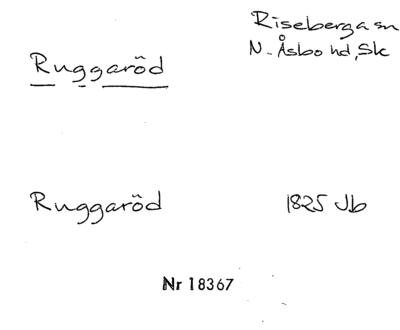 Riseberga sn
N. Åsbo hd, Sk
Ruggaröd
Ruggaröd 1825 Jb
Nr 18367